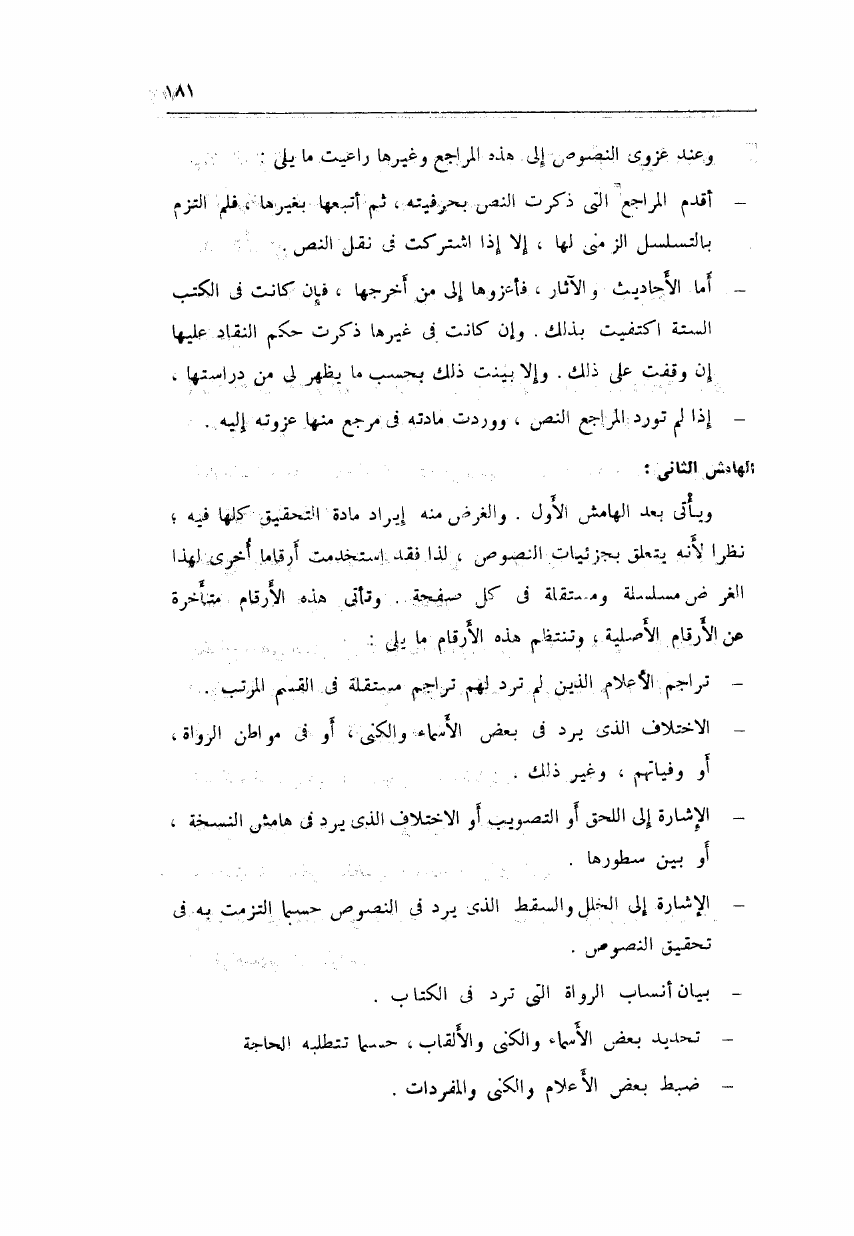 ١٨١
وعند عزوى النصوص إلى هذه المراجع وغيرها راعيت ما يلى :
– أقدم المراجع التى ذكرت النص بحرفيته ، ثم أتبعها بغيرها ، فلم التزم
بالتسلسل الزمنى لها ، إلا إذا اشتركت فى نقل النص .
– أما الأحاديث والآثار ، فأعزوها إلى من أخرجها ، فإن كانت فى الكتب
الستة اكتفيت بذلك . وإن كانت فى غيرها ذكرت حكم النقاد عليها
إن وقفت على ذلك . وإلا بينت ذلك بحسب ما يظهر لى من دراستها .
– إذا لم تورد المراجع النص ، ووردت مادته فى مرجع منها عزوته إليه .
الهامش الثانى :
ويأتى بعد الهامش الأول . والغرض منه إيراد مادة التحقيق كلها فيه ؛
نظرا لأنه يتعلق بجزئيات النصوص ، لذا فقد استخدمت أرقاما أخرى لهذا
الغرض مسلسلة ومستقلة فى كل صفحة . وتأتى هذه الأرقام متأخرة
عن الأرقام الأصلية ، وتنتظم هذه الأرقام ما يلى :
– تراجم الأعلام الذين لم ترد لهم تراجم مستقلة فى القسم المرتب .
– الاختلاف الذى يرد فى بعض الأسماء والكنى ، أو فى مواطن الرواة ،
أو وفياتهم ، وغير ذلك .
– الإشارة إلى اللحق أو التصويب أو الاختلاف الذى يرد فى هامش النسخة ،
أو بين سطورها .
– الإشارة إلى الخلل والسقط الذى يرد فى النصوص حسبما التزمت به فى
تحقيق النصوص .
– بيان أنساب الرواة التى ترد فى الكتاب .
– تحديد بعض الأسماء والكنى والألقاب ، حسبما تتطلبه الحاجة
– ضبط بعض الأعلام والكنى والمفردات .